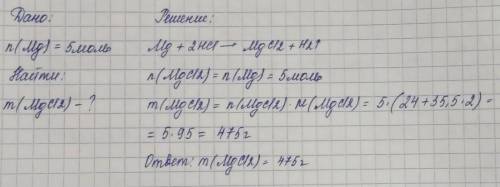 Дано:
Решение:
n(Mg) = 5моль
Mg + 2HCl → MgCl2 + H2↑
Найти:
n(MgCl2) = n(Mg) = 5моль
m(MgCl2) - ?
m(MgCl2) = n(MgCl2) · M(MgCl2) = 5 · (24 + 35,5 · 2) =
= 5 · 95 = 475г
Ответ: m(MgCl2) = 475г